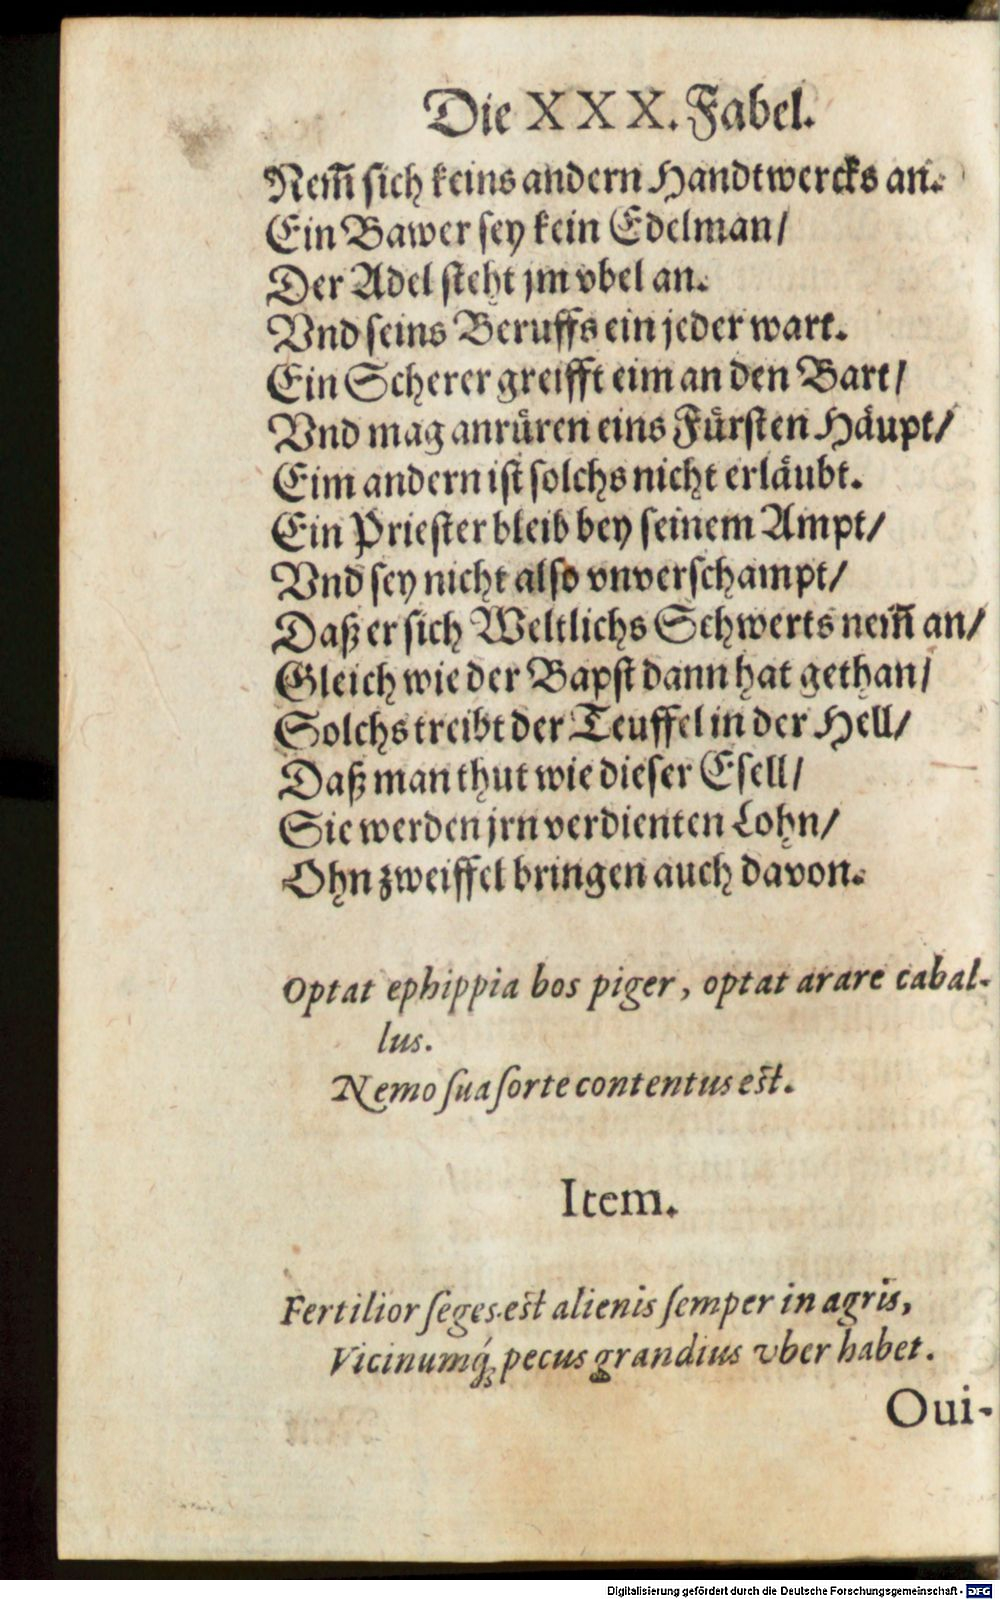 Die XXX. Fabel.
Nem̃ sich keins andern Handtwercks an.
Ein Bawer sey kein Edelman/
Der Adel steht jm vbel an.
Vnd seins Beruffs ein jeder wart.
Ein Scherer greifft eim an den Bart/
Vnd mag anrüren eins Fürsten Häupt/
Eim andern ist solchs nicht erläubt.
Ein Priester bleib bey seinem Ampt/
Vnd sey nicht also vnverschampt/
Daß er sich Weltlichs Schwerts nem̃ an/
Gleich wie der Bapst dann hat gethan/
Solchs treibt der Teuffel in der Hell/
Daß man thut wie dieser Esell/
Sie werden jrn verdienten Lohn/
Ohn zweiffel bringen auch davon.
Optat ephippia bos piger, optat arare cabal-
lus.
Nemo sua sorte contentus est.
Item.
Fertilior seges est alienis semper in agris,
Vicinumq́; pecus grandius vber habet.
Oui-
Digitalisierung gefördert durch die Deutsche Forschungsgemeinschaft - DFG